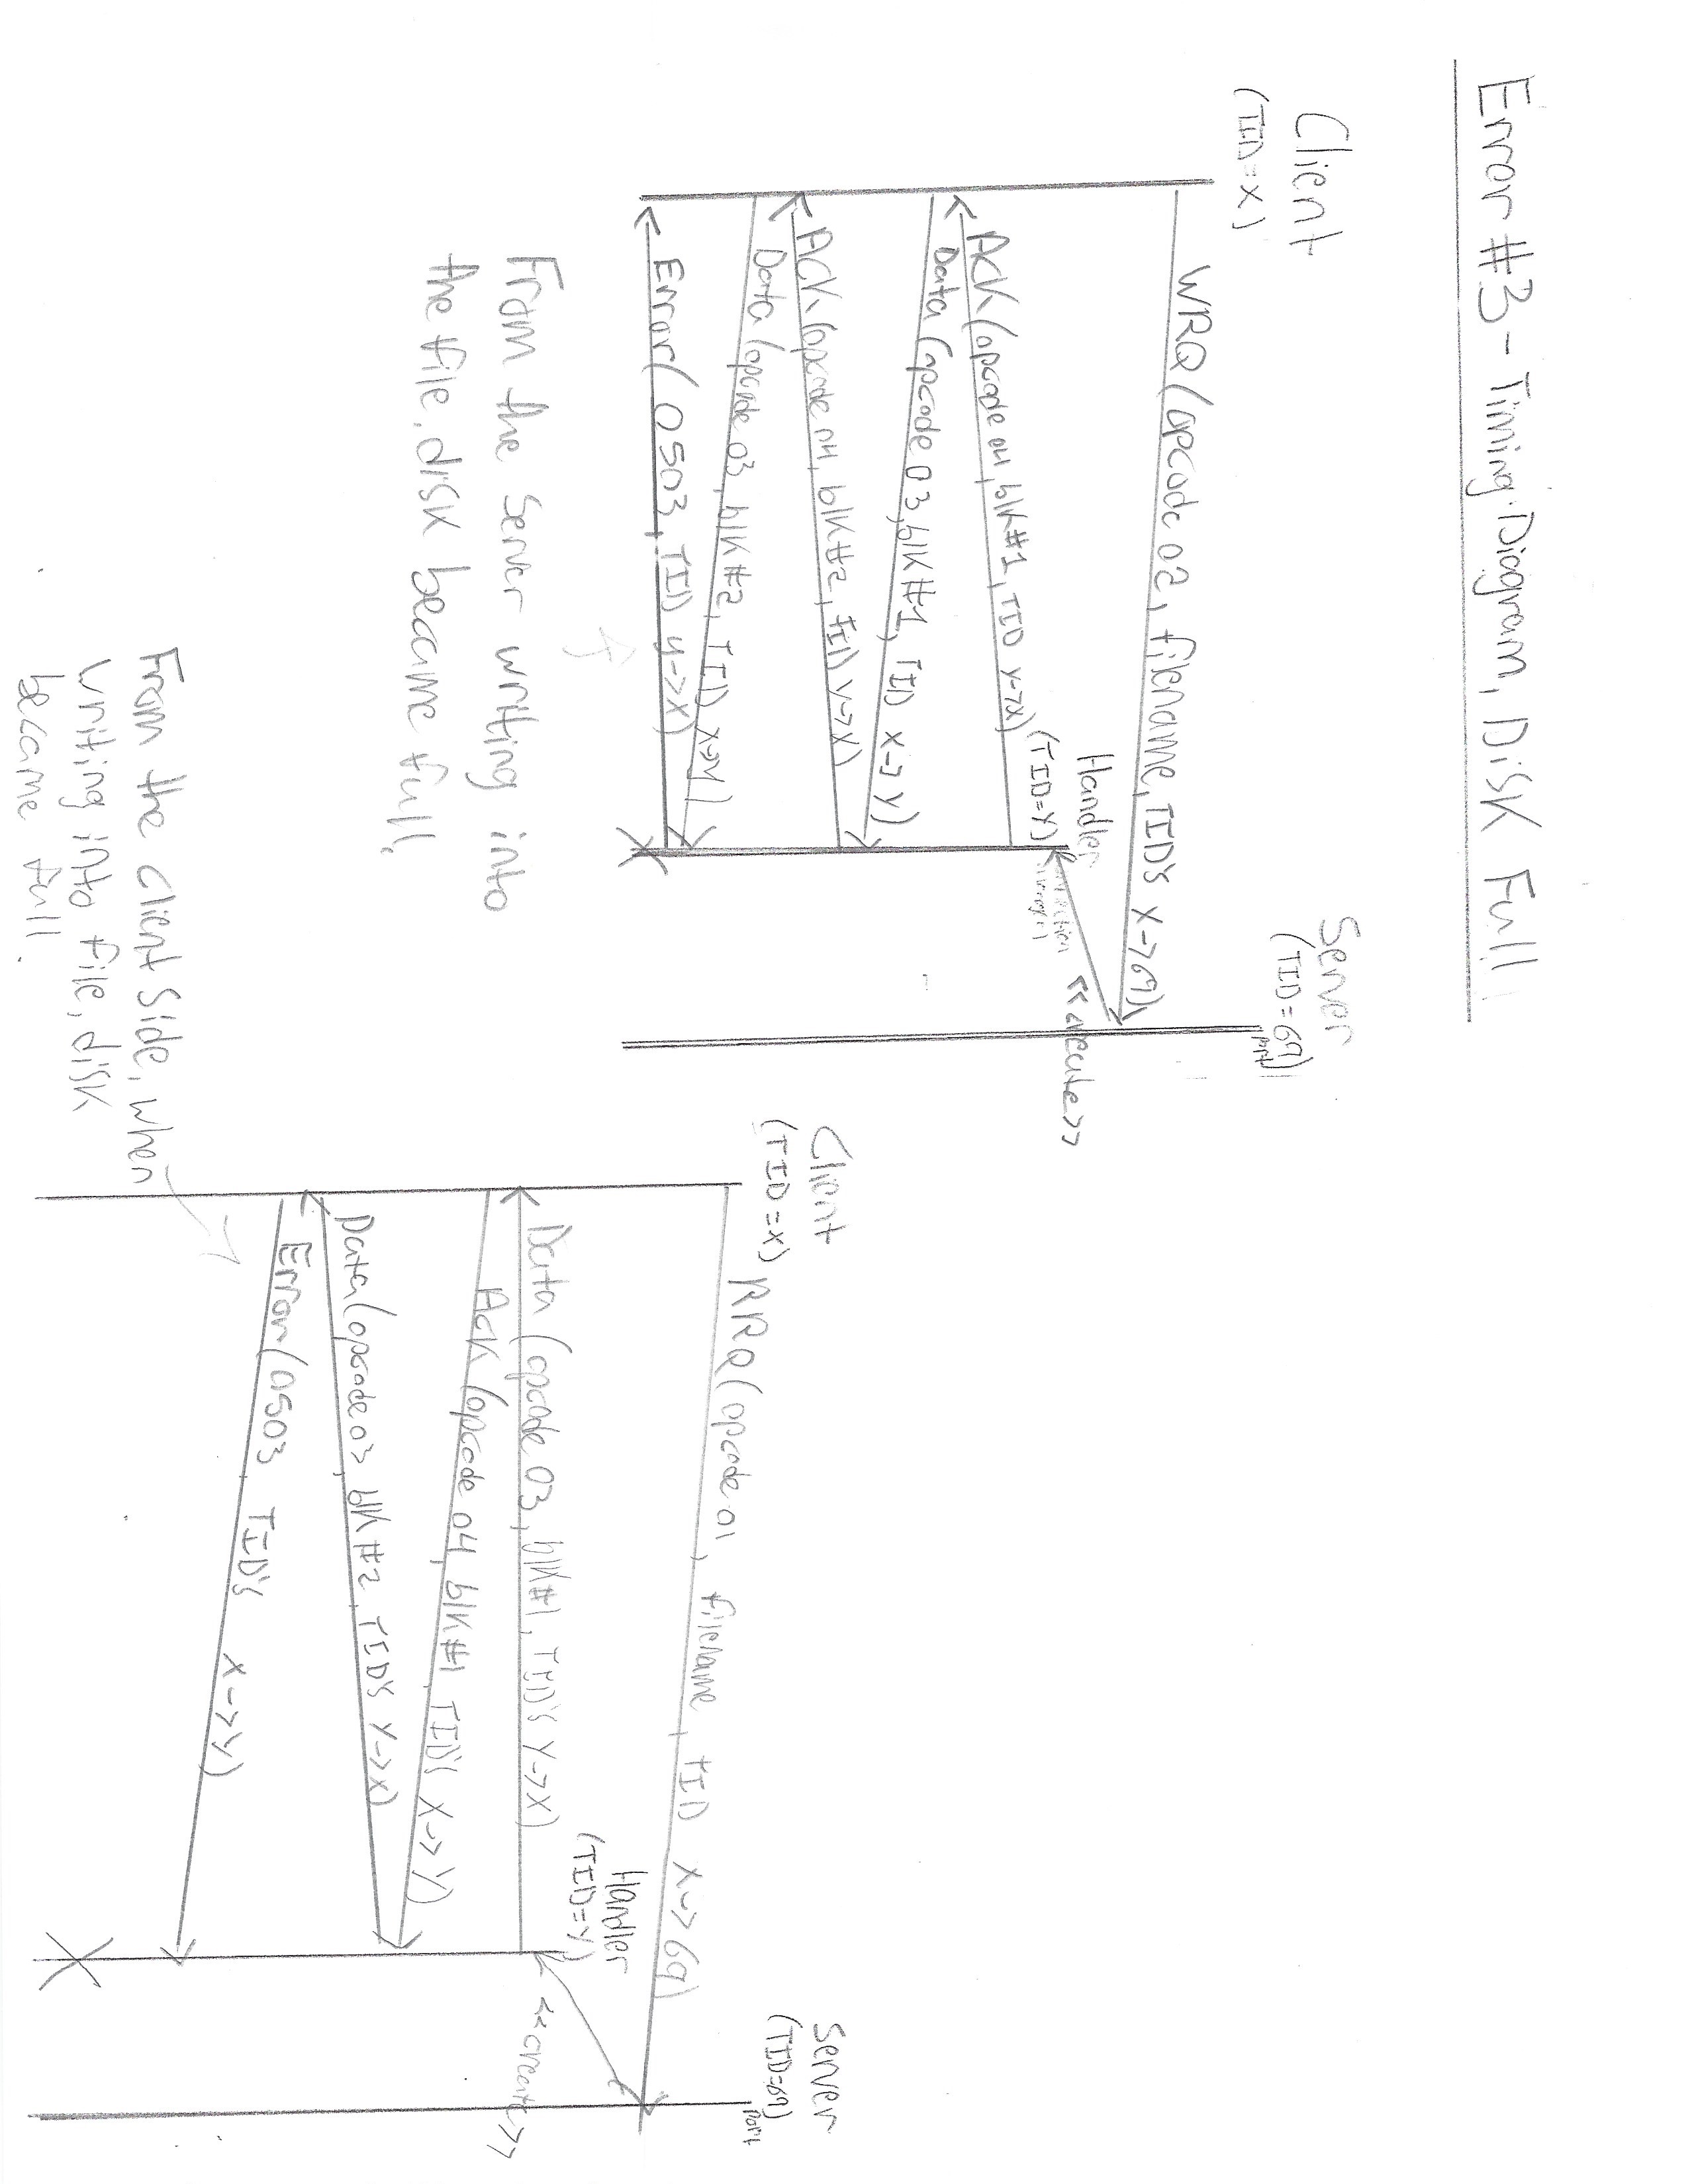 Error #3 - Timing Diagram, Disk Full
Client
(TID=X)
Server
(TID=69)
port
WRQ (opcode 02, filename, TID's X->69)
Handler
(TID=Y)
<<create>>
ACK (opcode 04, blk#1, TID Y->X)
Data (opcode 03, blk#1, TID X->Y)
ACK (opcode 04, blk#2, TID Y->X)
Data (opcode 03, blk#2, TID X->Y)
Error( 0503, TID Y->X)
From the Server writing into
the file, disk became full.
Client
(TID=X)
Server
(TID=69)
port
RRQ (opcode 01, filename, TID X->69)
Handler
(TID=Y)
<<create>>
Data (opcode 03, blk#1, TID's Y->X)
Ack (opcode 04, blk#1, TID's X->Y)
Data (opcode 03, blk#2, TID's Y->X)
Error (0503, TID's X->Y)
From the client Side, when
writing into file, disk
became full.